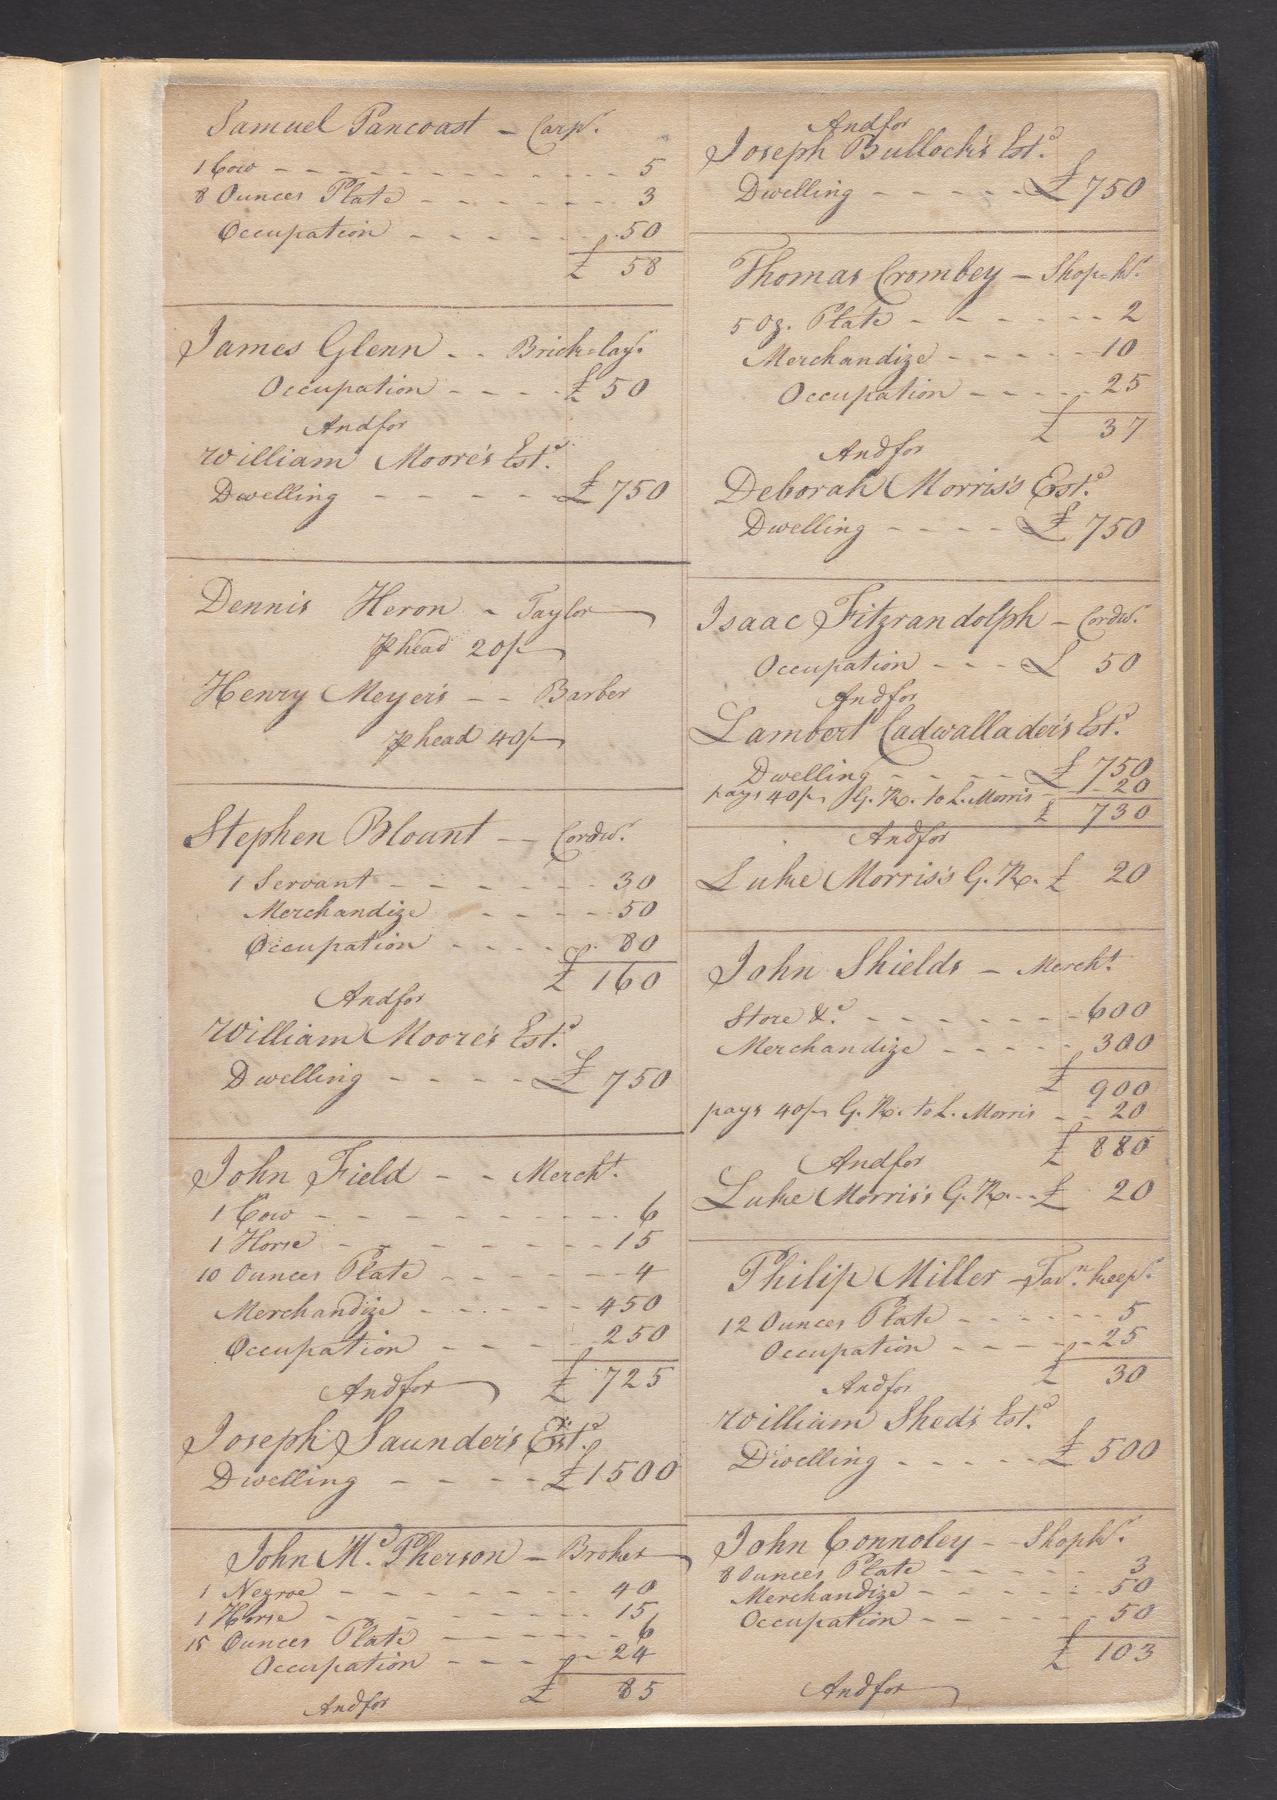 Samuel Pancoast - Carpr.
1 Cow - - - - - - - - - - - 5
8 Ounces Plate - - - - - - - 3
Occupation - - - - - 50
£ 58
James Glenn - - Brick-layr.
Occupation - - - - £ 50
And for
William Moore's Estd.
Dwelling - - - - - £ 750
Dennis Heron - Taylor
⅌ head 20/-
Henry Meyers - - Barber
⅌ head 40/-
Stephen Blount - - Cordwr.
1 Servant - - - - - - 30
Merchandize - - - - 50
Occupation - - - - - 80
£ 160
And for
William Moore's Estd.
Dwelling - - - - - £ 750
John Field - - Mercht.
1 Cow - - - - - - - - - 6
1 Horse - - - - - - - 15
10 Ounces Plate - - - - - 4
Merchandize - - - - - 450
Occupation - - - - 250
£ 725
And for
Joseph Saunders's Estd.
Dwelling - - - - £ 1500
John Mc.Pherson - Broker
1 Negroe - - - - - - - 40
1 Horse - - - - - - - 15
15 Ounces Plate - - - - - 6
Occupation - - - - - 24
£ 85
And for
And for
Joseph Bullock's Estd.
Dwelling - - - - - £ 750
Thomas Crombey - Shop-kr.
5 Oz. Plate - - - - - - 2
Merchandize - - - - - 10
Occupation - - - - - 25
£ 37
And for
Deborah Morris's Estd.
Dwelling - - - - £ 750
Isaac Fitzrandolph - Cordwr.
Occupation - - - £ 50
And for
Lambert Cadwallader's Estd.
Dwelling - - - - £ 750
pays 40/- G. R. to L. Morris - - 20
£ 730
And for
Luke Morris's G. R. £ 20
John Shields - Mercht.
Store &c. - - - - - - - 600
Merchandize - - - - - 300
£ 900
pays 40/- G. R. to L. Morris - - 20
£ 880
And for
Luke Morris's G. R. - - £ 20
Philip Miller - Tavn. keepr.
12 Ounces Plate - - - - - 5
Occupation - - - - - 25
£ 30
And for
William Shed's Estd.
Dwelling - - - - - £ 500
John Connoley - - Shopkr.
8 Ounces Plate - - - - - 3
Merchandize - - - - - 50
Occupation - - - - - 50
£ 103
And for